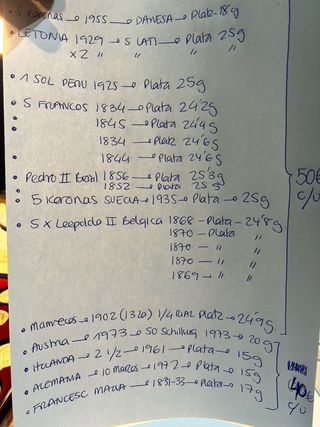 • 5 Koronas → 1955 → DANESA → Plata - 18g
• LETONIA 1929 → 5 LATI → Plata 25g
x2 " " " "
• 1 SOL PERU 1925 → Plata 25g
• 5 FRANCOS 1834 → Plata 24'2g
• 1845 → Plata 24'9g
• 1834 → Plata 24'6g
• 1844 → Plata 24'6g
• Pedro II Brasil 1856 → Plata 25'3g
• 1852 → Plata 25'5g
• 5 Koronas SUECIA → 1935 → Plata → 25g
• 5 x Leopoldo II Belgica 1868 - Plata - 24'8g
1870 - Plata "
1870 - " "
1870 - " "
1869 → " "
50€
c/u
• Marruecos → 1902 (1320) 1/4 RIAL Plata → 24'9g
• Austria → 1973 → 50 Schilling 1973 → 20g
• HOLANDA → 2 1/2 → 1961 → Plata → 15g
• ALEMANIA → 10 marcos → 1972 → Plata → 15g
• FRANCESC MARIA → 1831-33 → Plata → 17g
40€
c/u